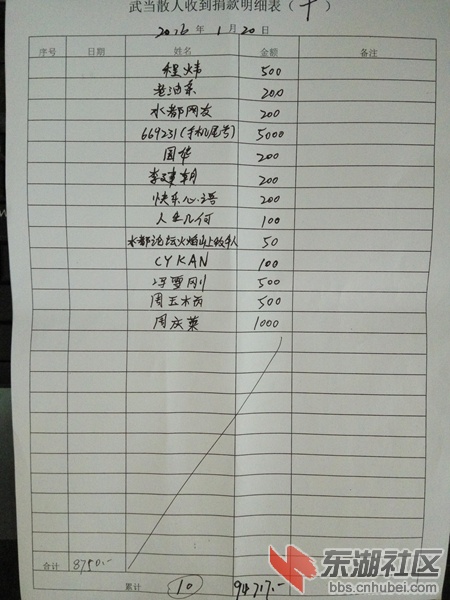 武当散人收到捐款明细表（十）
2016年1月20日
序号 日期 姓名 金额 备注
程炜 500
老油条 200
水都网友 200
669231(手机尾号) 5000
国华 200
李建朝 200
快乐心语 200
人生几何 100
水都论坛火焰山上的牛人 50
CYKAN 100
冯雪刚 500
周玉 500
周庆莱 1000
合计 8750.-
累计 10 94717.-
东湖社区
bbs.cnhubei.com